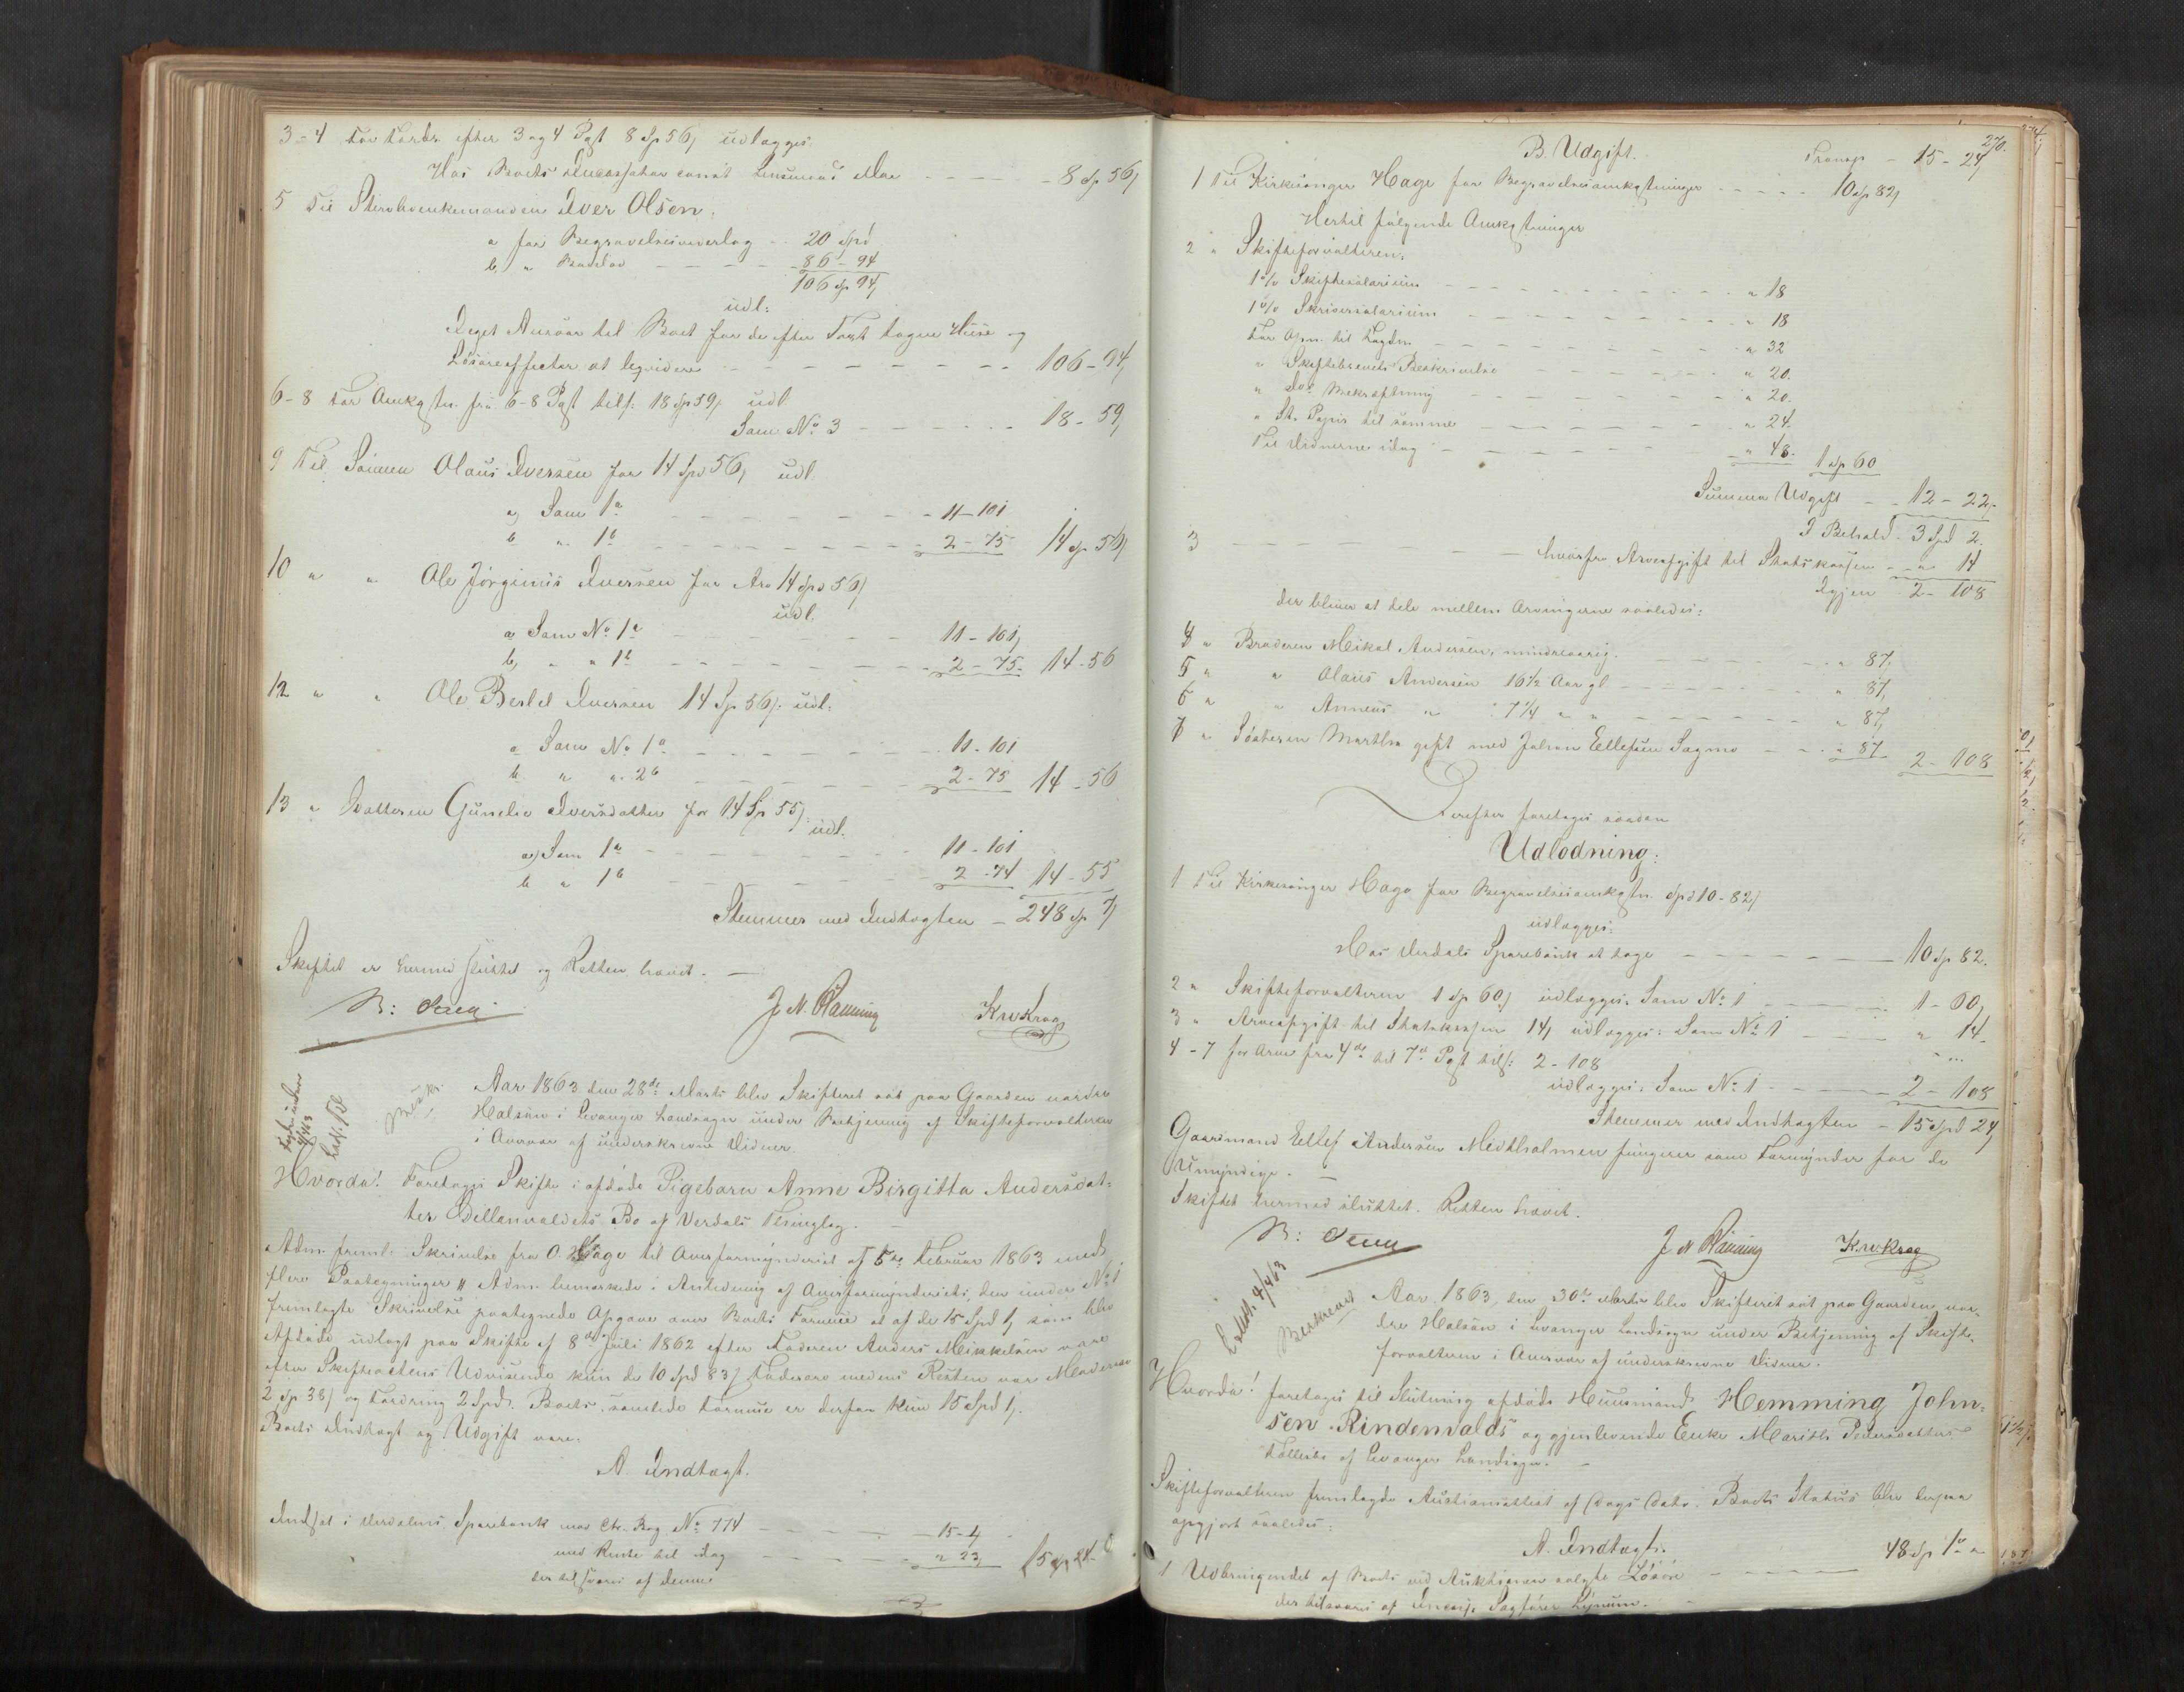 3-4 For Fordr. efter 3 og 4 Pgt 8 Sp 56/ udlægges.
Hos Boets Incassator const Lensmand Moe - - - 8 Sp 56/
5 Til Sterboenkemanden Iver Olsen:
a for Begravelsesudlæg - 20 Spd
b, " Boeslod - - - 86-94
106 Sp 94/
udl:
Eget Ansvar til Boet for de efter Taxt tagne Huse og
Løsøreeffecter at liqvidere - - - 106-94/
6-8 For Omkostn. fra 6-8 Pgst tils: 18 Sp 59/. udl
Som No 3 - - - 18-59/
9 Til Sønnen Olaus Iversen for 14 Spd 56/ udl.
a) Som 1a - - - 11-101
b " 1b - - - 2-75 14 Sp 56/
10 " " Ole Jørginus Iversen for Arv 14 Spd 56/
udl.
a Som No 1a - - - 11-101,
b, " " 1b - - - 2-75- 14-56
12 " " Ole Bertel Iversen 14 Sp 56/: udl:
a Som No 1a - - - 11-101
b. " " 2b - - - 2-75 14-56
13 " Datteren Gunelie Iversdatter for 14 Sp 55/. udl.
a) Som 1a - - - 11-101
b " 1b - - - 2-74 14-55
Stemmer med Indtægten - 248 Sp 7/
Skiftet er hermed sluttet og Retten hævet. -
J N Rønning
KrvKrog
Beskr.
Aar 1863 den 28de Marts blev Skifteret sat paa Gaarden nordre
Halsan i Levanger Landsogn under Betjening af Skifteforvalteren
i Overvær af underskrevne Vidner.
Hvorda! Foretages Skifte i afdøde Pigebarn Anne Birgitta Andersdat-
ter Dellanvaldets Bo af Verdals Thinglag. -
Adm. freml: Skrivelse fra O. Hage til Overformynderiet af 5te Februar 1863 med
flere Paategninger " Adm. bemærkede i Anledning af Overformynderiets, den under No 1
fremlagte Skrivelse paategnede Opgave over Boets Formue at af de 15 Spd 1/ som blev
Afdøde udlagt paa Skifte af 8de Juli 1862 efter Faderen Anders Mikkelsen vare
efter Skifteactens Udvisende kun de 10 Spd 83/ Faderarv medens Resten var Moderarv
2 Sp 38/ og Fordring 2 Spd. Boets samlede Formue er derfor kun 15 Spd 1/.
Boets Indtægt og Udgift vare:
A. Indtægt.
Indsat i Verdalens Sparebank mod Ctr. Bog No 774 - - - 15-1
med Rente til Dag - - - " 23, 15 Sp 24
der tilsvares af denne
270.
B. Udgift. Transp - 15-24/
1 Til Kirkesanger Hage for Begravelsesomkostninger - - - 10 Sp 82/
Hertil følgende Omkostninger
2 " Skifteforvalteren:
1% Skiftesalarium - - - " 18
1% Skriversalarium - - - " 18
- - - " 32
" Skiftebrevets Beskrivelse - - - " 20.
" Do Bekræftning - - - " 20.
" St. Papir til samme - - - " 24.
Til Vidnerne idag - - - " 48. 1 Sp 60
Summa Udgift - - 12-22,
I Behold. 3 Spd 2.
3 - - - hvorfra Arveafgift til Statskassen - - " 14
Igjen 2-108
der bliver at dele mellem Arvingerne saaledes:
4 " Broderen Mikal Andersen, mindreaarig. - - - " 87,
5 " " Olaus Andersen 16½ Aar gl. - - - " 87,
6 " " Anneus " 7¼ " " - - - " 87,
7 " Søsteren Martha gift med Johan Ellefsen Sagmo - - - " 87. 2-108
Derefter foretages saadan
Udlodning:
1 Til Kirkesanger Hage for Begravelsesomkostn. Spd 10-82/
udlægges:
Hos Verdals Sparebank at tage - - - 10 Sp 82.
2 " Skifteforvalteren 1 Sp 60/ udlægges: Som No 1 - - - 1-60,
3 " Arveafgift til Statskassen 14/ udlægges: Som No 1 - - - " 14.
4-7 for Arv fra 4de til 7de Pgst tils: 2-108
udlægges: Som No 1 - - - 2-108
Stemmer med Indtægten - 15 Spd 24/
Gaardmand Ellef Andersen Midtholmen fungerer som Formynder for de
Umyndige. -
Skiftet hermed sluttet. Retten hævet.
J N Rønning
KrvKrog
4/4 63
Beskrevet
Aar 1863, den 30te Marts blev Skifteret sat paa Gaarden nor-
dre Halsan i Levanger Landsogn under Betjening af Skifte-
forvalteren i Overvær af underskrevne Vidner.
Hvorda! foretages til Slutning afdøde Huusmand Hemming John-
sen Rindenvalds og gjenlevende Enke Marith Pedersdatters
Fællesbo af Levanger Landsogn. -
Skifteforvalteren fremlagde Auctionsattest af Dags Dato. Boets Status blev derpaa
opgjort saaledes:
A. Indtægt.
1 Udbringendet af Boets ved Auktionen solgte Løsøre - - - 48 Sp 1 "
der tilsvares af Incass. Sagfører Lynum. -